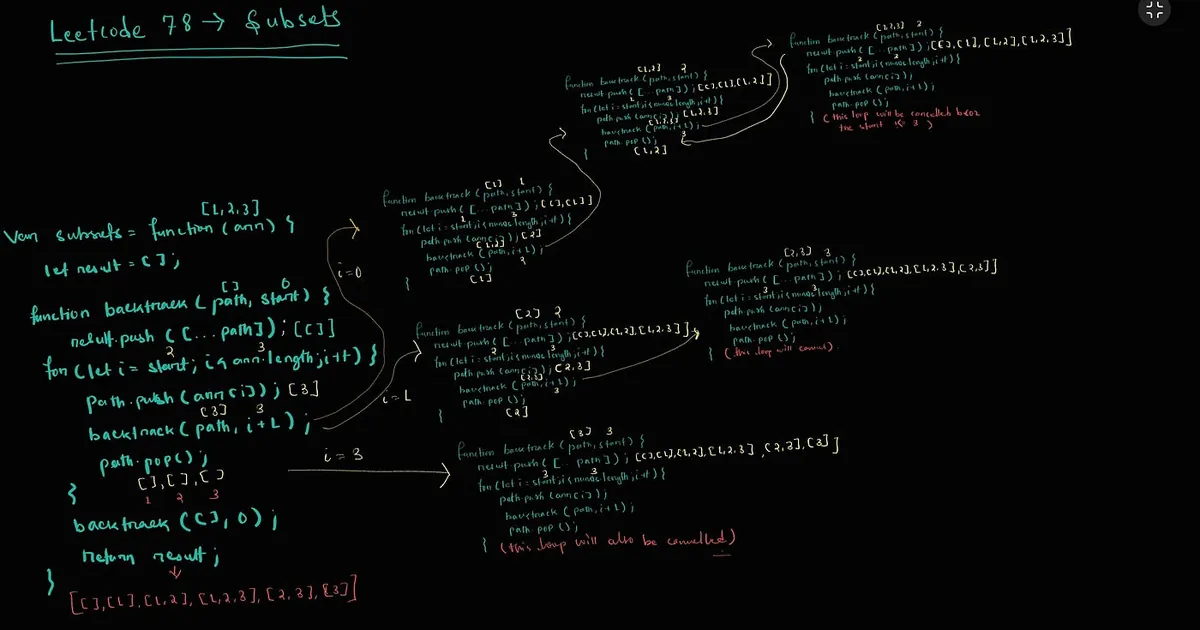 Leetcode 78 → Subsets
[1,2,3]
var subsets = function (arr) {
let result = [];
[] 0
function backtrack (path, start) {
result.push ([...path]); [[]]
2 3
for (let i = start; i < arr.length; i++) {
path.push (arr[i]); [3]
[3] 3
backtrack (path, i+1);
path.pop();
[],[],[]
} 1 2 3
backtrack ([], 0);
return result;
}
[[],[1],[1,2],[1,2,3],[2,3],[3]]
i=0
i=1
i = 3
[1] 1
function backtrack (path, start) {
result.push ([...path]); [[],[1]]
1 3
for (let i = start; i < nums.length; i++) {
path.push (arr[i]); [2]
[1,2] 2
backtrack (path, i+1);
path.pop ();
} [1]
[1,2] 2
function backtrack (path, start) {
result.push ([...path]); [[],[1],[1,2]]
for (let i = start; i < nums.length; i++) {
path.push (arr[i]); [1,2,3]
[1,2,3] 3
backtrack (path, i+1);
path.pop ();
} [1,2]
[1,2,3] 2
function backtrack (path, start) {
result.push ([...path]); [[],[1],[1,2],[1,2,3]]
for (let i = start; i < nums.length; i++) {
path.push (arr[i]);
backtrack (path, i+1);
path.pop ();
} (this loop will be cancelled
the start 3 )
[2] 2
function backtrack (path, start) {
result.push ([...path]); [[],[1],[1,2],[1,2,3]],
2 3
for (let i = start; i < nums.length; i++) {
path.push (arr[i]); [2,3]
[2,3] 3
backtrack (path, i+1);
path.pop ();
} [2]
[2,3] 3
function backtrack (path, start) {
result.push ([...path]); [[],[1],[1,2],[1,2,3],[2,3]]
3 3
for (let i = start; i < nums.length; i++) {
path.push (arr[i]);
backtrack (path, i+1);
path.pop ();
} (this loop will cancel)
[3] 3
function backtrack (path, start) {
result.push ([...path]); [[],[1],[1,2],[1,2,3],[2,3],[3]]
3 3
for (let i = start; i < nums.length; i++) {
path.push (arr[i]);
backtrack (path, i+1);
path.pop ();
} (this loop will also be cancelled)